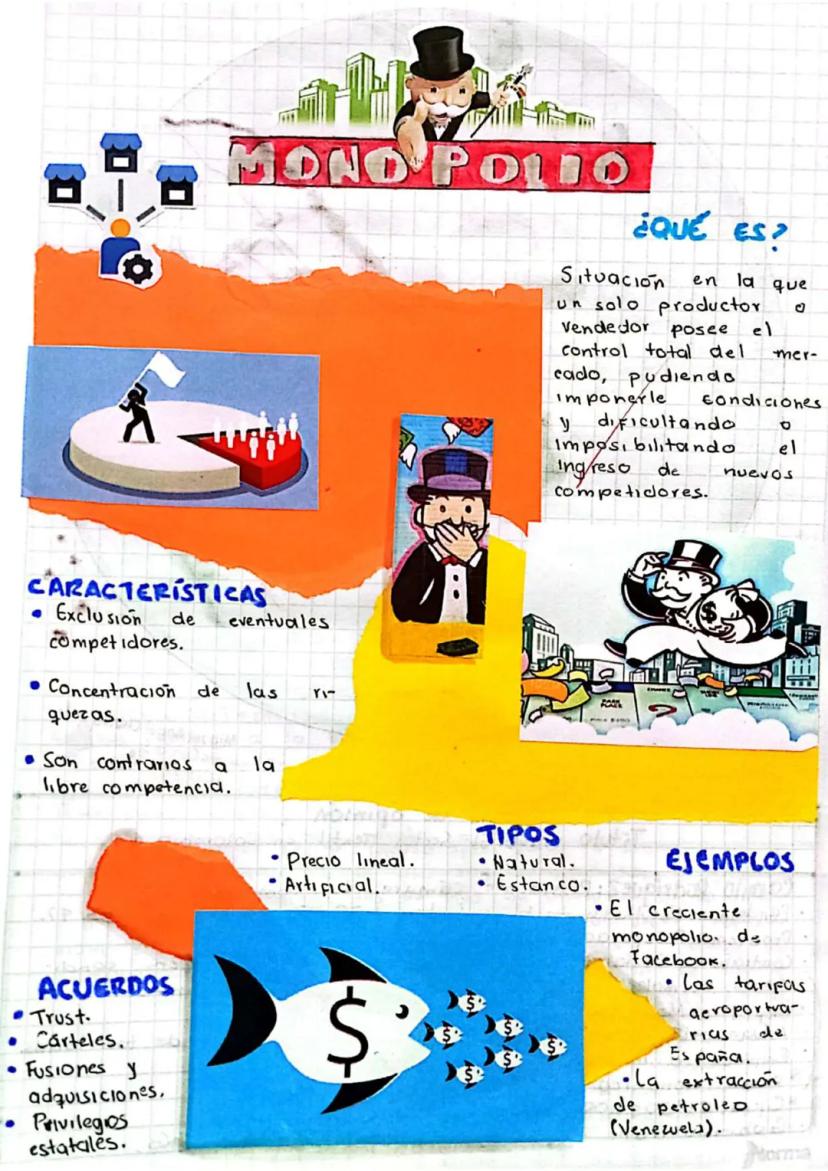 MONOPOLIO
¿QUÉ ES?
Situación en la que
un solo productor o
vendedor posee el
control total del mer-
cado, pudiendo
imponerle condiciones
y dificultando o
imposibilitando el
ingreso de nuevos
competidores.
CARACTERÍSTICAS
• Exclusión de eventuales
competidores.
• Concentración de las ri-
quezas.
• Son contrarios a la
libre competencia.
TIPOS
• Precio lineal.
• Artificial.
• Natural.
• Estanco.
EJEMPLOS
• El creciente
monopolio de
Facebook.
• Las tarifas
aeroportua-
rias de
España.
• La extracción
de petroleo
(Venezuela).
ACUERDOS
• Trust.
• Cárteles.
• Fusiones y
adquisiciones.
• Privilegios
estatales.
PARK
PLACE
CHANCE
?
$
$
$
$
$
$
$
$
Norma